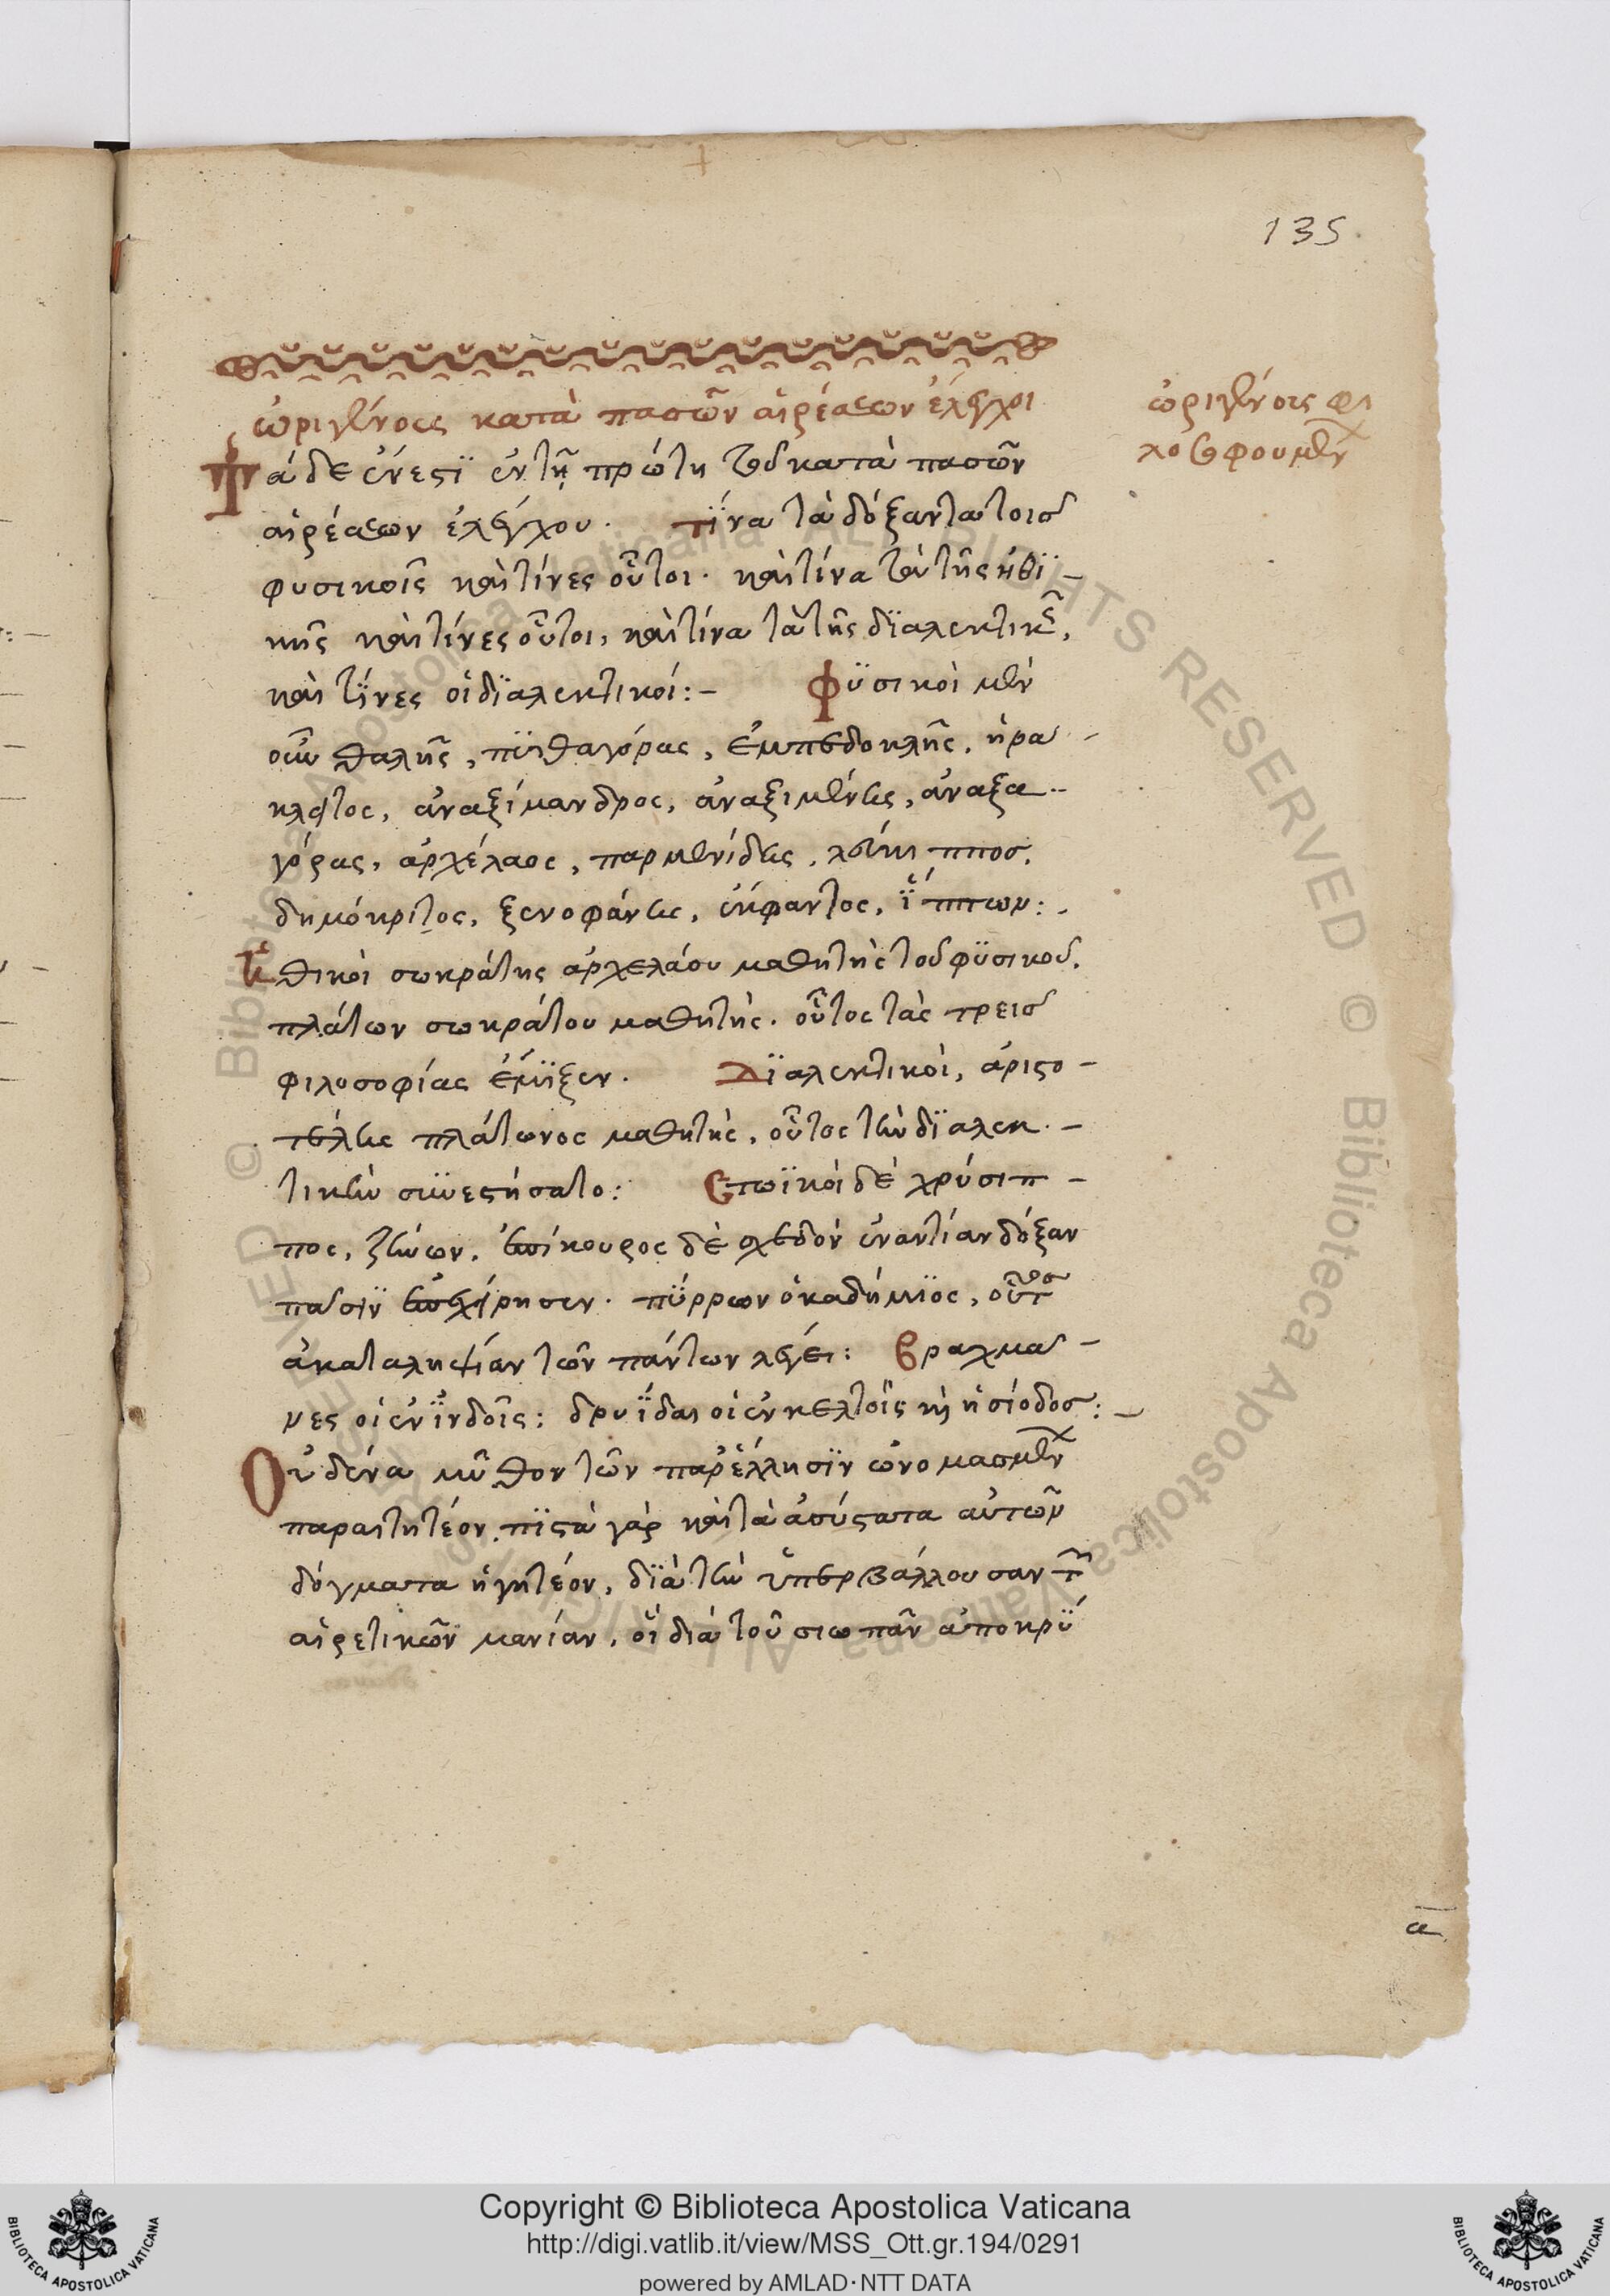 135
ὠριγένους κατὰ πασῶν αἱρέσεων ἔλεγχοι
ὠριγένους φι
λοσοφουμέν
Τάδε ἔνεστϊ ἐν τῇ πρώτη τοῦ κατὰ πασῶν
αἱρέσεων ἐλέγχου. τΐνα τὰ δόξαντα τοισ
φυσικοῖς καὶ τίνες οὗτοι. καὶ τίνα τὰ τῆς ἠθϊ-
κῆς καὶ τίνες οὗτοι, καὶ τίνα τὰ τῆς δϊαλεκτικῆς,
καὶ τΐνες οἱ δϊαλεκτικοί:- Φϋσικοὶ μὲν
οὖν θαλῆς, πϋθαγόρας, ἐμπεδοκλῆς, ἡρα-
κλειτος, ἀναξίμανδρος, ἀναξιμένης, ἀναξα-
γόρας, ἀρχέλαος, παρμενίδης, λεύκιπποσ,
δημόκριτος, ξενοφάνης, ἔκφαντος, ἵππων:-
Ἠθικοὶ σωκράτης ἀρχελάου μαθητὴς τοῦ φϋσικοῦ,
πλάτων σωκράτου μαθητὴς. οὗτος τὰς τρεισ
φιλοσοφίας ἔμϊξεν. Δϊαλεκτικοὶ, ἀριστο-
τέλης πλάτωνος μαθητὴς, οὗτος τὴν δϊαλεκ-
τικὴν συνεστήσατο: Στωϊκοὶ δὲ χρύσιπ-
πος, ζήνων, ἐπίκουρος δὲ σχεδὸν ἐναντίαν δόξαν
πᾶσϊν ἐπεχείρησεν. πΰρρων ὁ καδήμϊος, οὗτος
ἀκαταληψίαν τῶν πάντων λέγει: Βραχμᾶ-
νες οἱ ἐν ἰνδοῖς: δρυΐδαι οἱ ἐν κελτοῖς καὶ ἡσίοδοσ:-
Οὐδένα μῦθον τῶν παρ' ἕλλησϊν ὠνομασμέν
παραιτητέον. πϊστὰ γὰρ καὶ τὰ ἀσύστατα αὐτῶν
δόγματα ἡγητέον, δϊὰ τὴν ὑπερβάλλουσαν τῶν
αἱρετικῶν μανίαν, οἳ διὰ τοῦ σιωπᾶν ἀποκρΰ
α
Copyright © Biblioteca Apostolica Vaticana
http://digi.vatlib.it/view/MSS_Ott.gr.194/0291
powered by AMLAD·NTT DATA